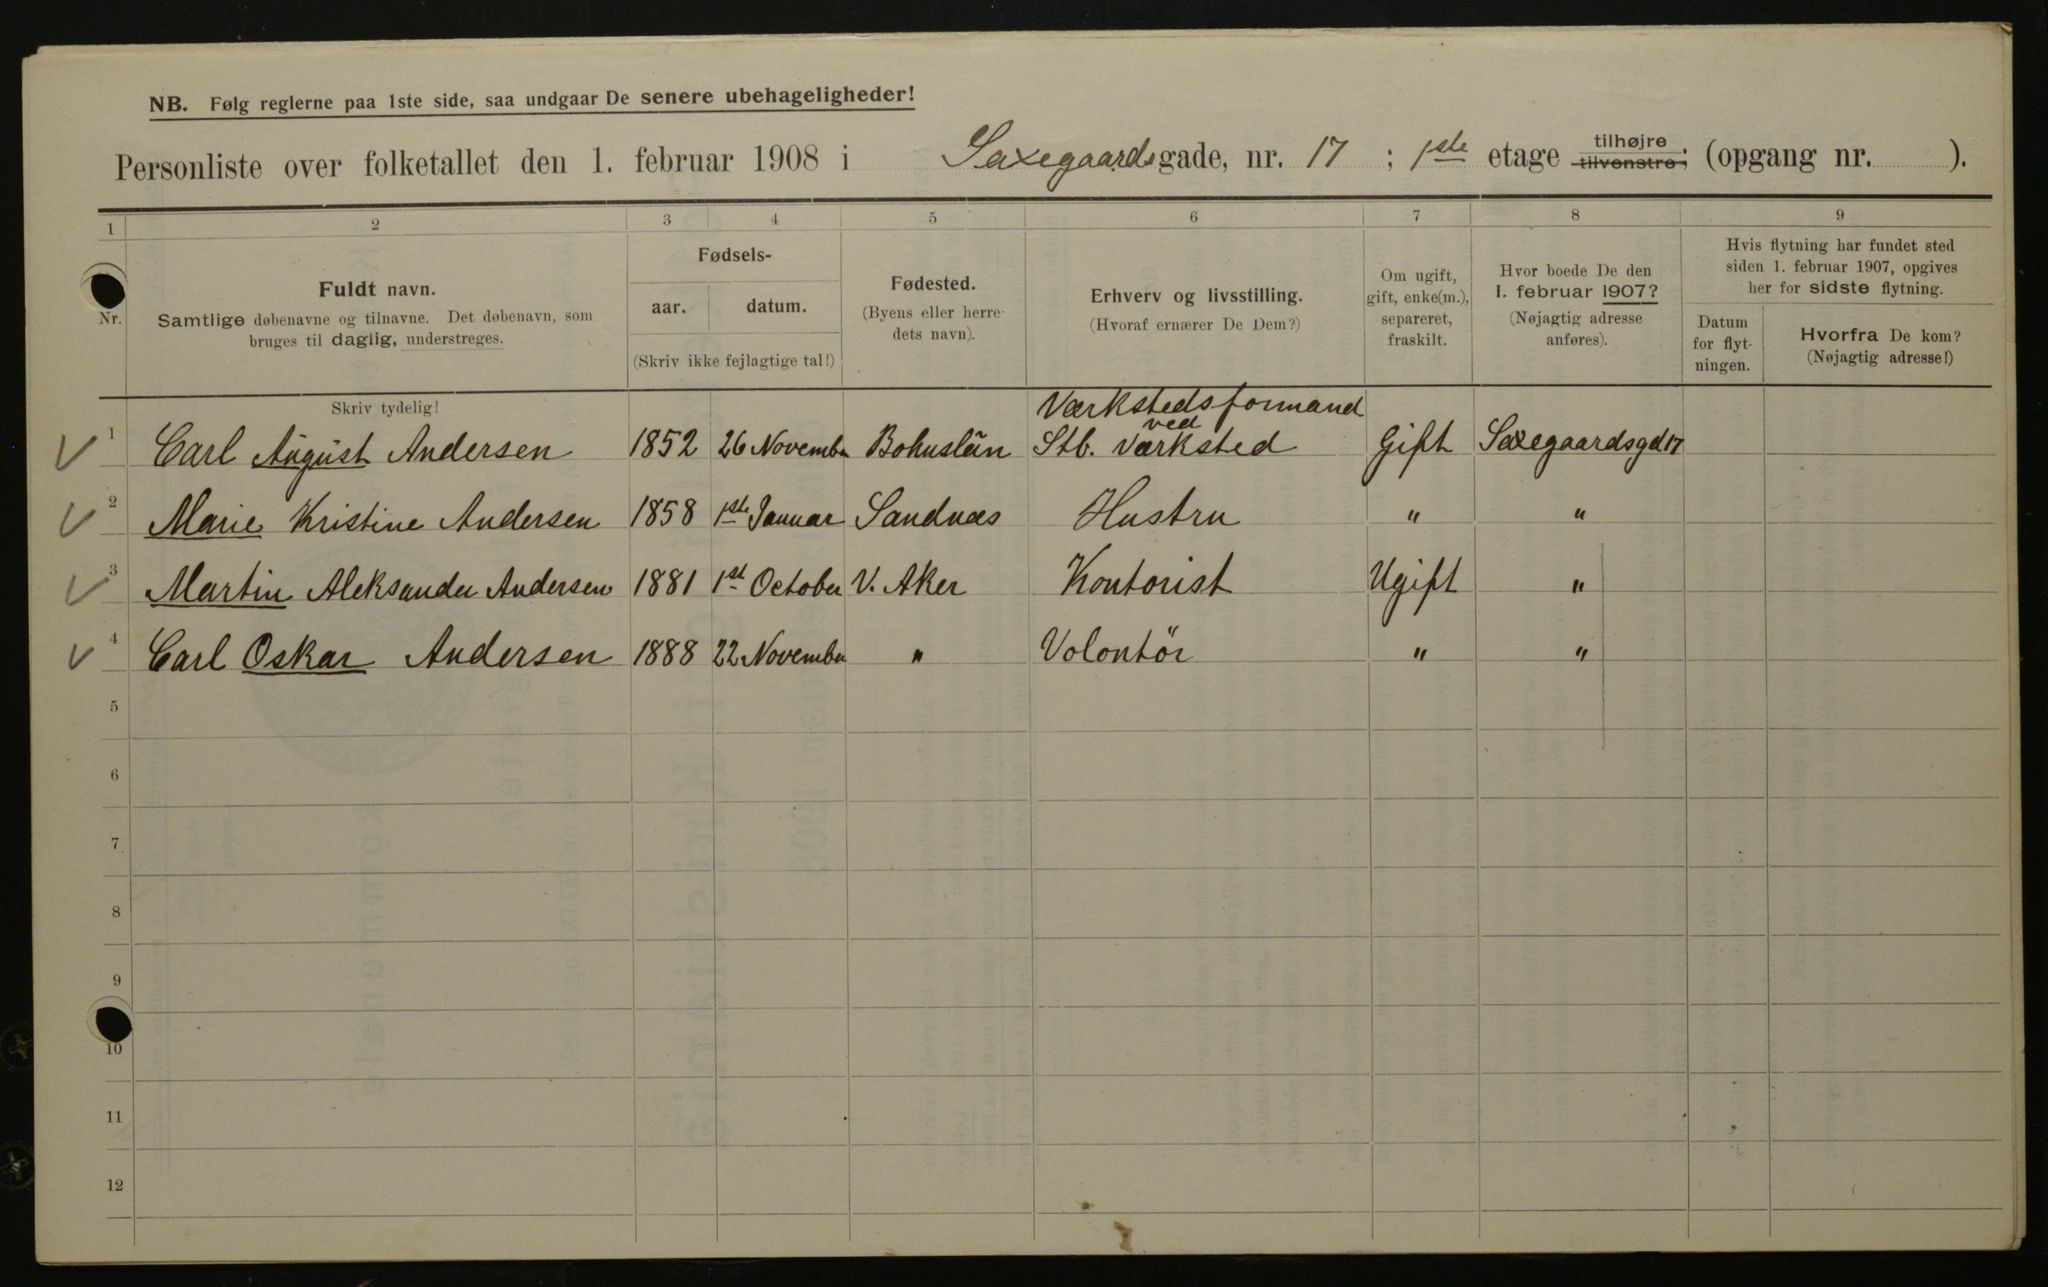 NB. Følg reglerne paa 1ste side, saa undgaar De senere ubehageligheder!
Personliste over folketallet den 1. februar 1908 i Saxegaardsgade, nr. 17 ; 1ste etage tilhøjre tilvenstre; (opgang nr. ).
1 2 3 4 5 6 7 8 9
Nr.
Fuldt navn.
Samtlige døbenavne og tilnavne. Det døbenavn, som
bruges til daglig, understreges.
Skriv tydelig!
Fødsels-
aar. datum.
(Skriv ikke fejlagtige tal!)
Fødested.
(Byens eller herre-
dets navn).
Erhverv og livsstilling.
(Hvoraf ernærer De Dem?)
Om ugift,
gift, enke(m.),
separeret,
fraskilt.
Hvor boede De den
1. februar 1907?
(Nøjagtig adresse
anføres).
Hvis flytning har fundet sted
siden 1. februar 1907, opgives
her for sidste flytning.
Datum
for flyt-
ningen.
Hvorfra De kom?
(Nøjagtig adresse!)
Værkstedsformand
ved
1 Carl August Andersen 1852 26 Novembr Bohuslän Stb. Værksted Gift Saxegaardsgd 17
2 Marie Kristine Andersen 1858 1ste Januar Sandnæs Hustru " "
3 Martin Aleksander Andersen 1881 1st October V. Aker Kontorist Ugift "
4 Carl Oskar Andersen 1888 22 November " Volontör " "
5
6
7
8
9
10
11
12